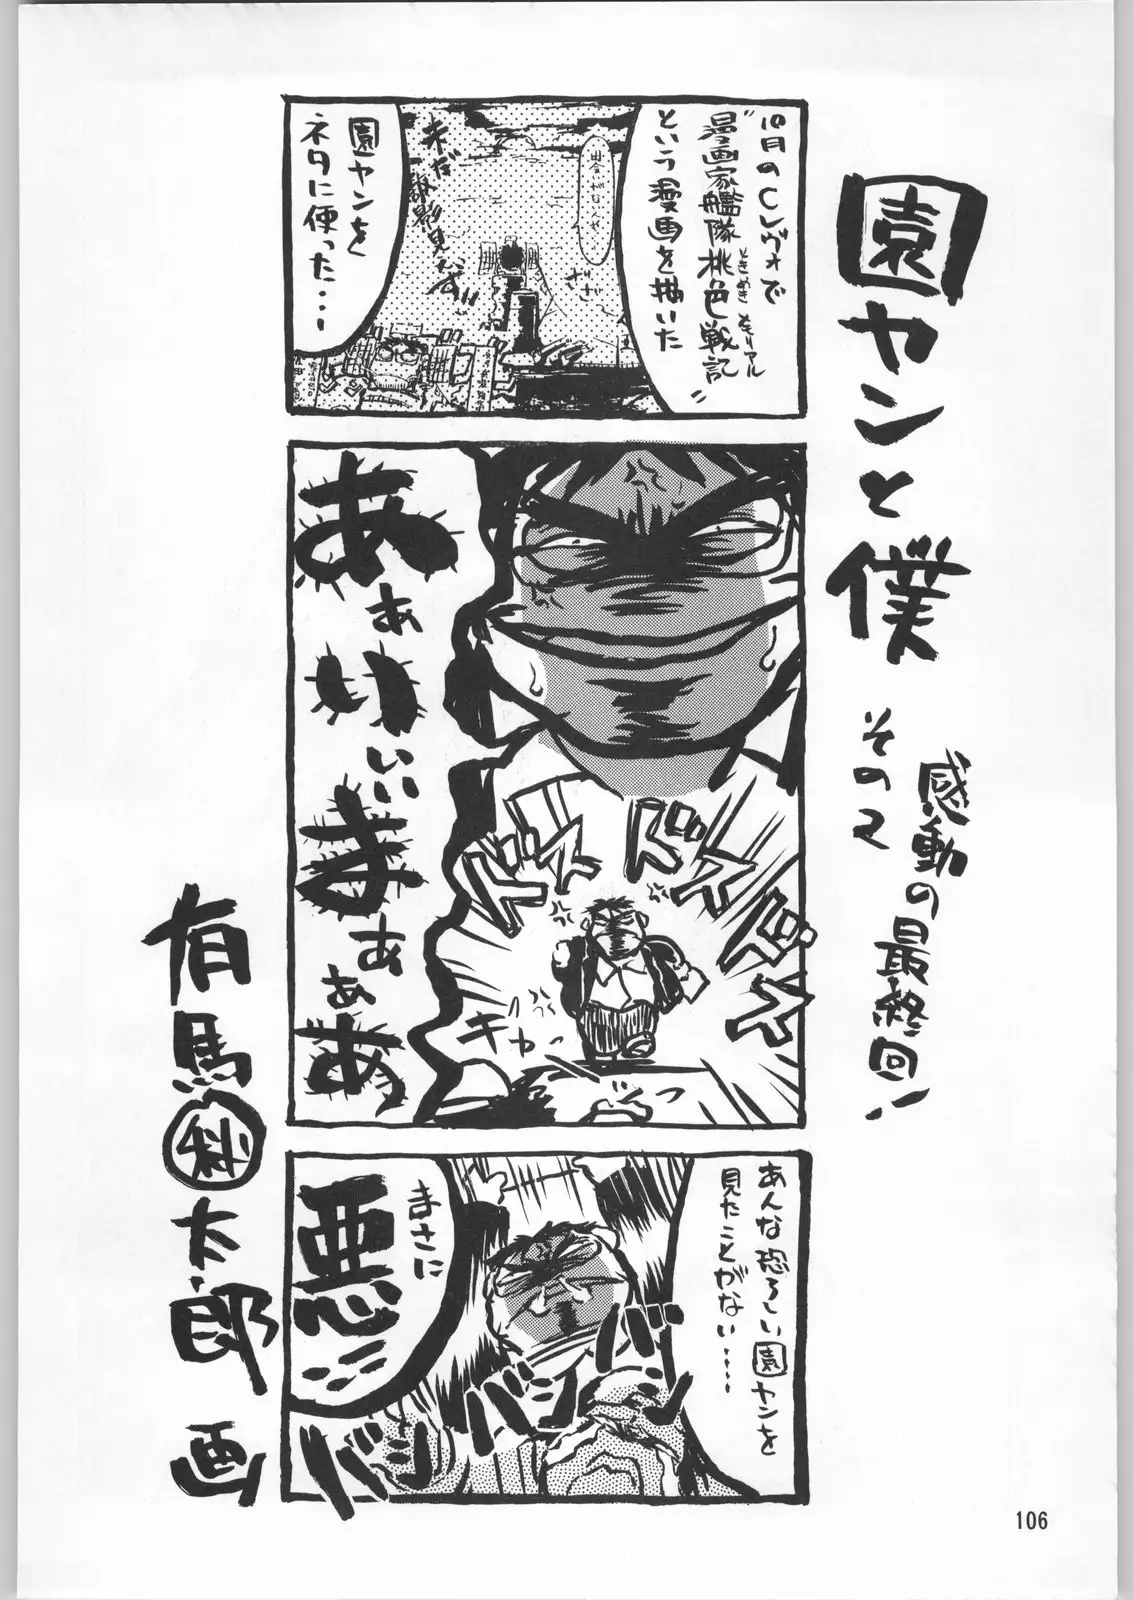 園ヤンと僕
その2
感動の最終回!
10月のCレヴォで
"漫画家艦隊桃色戦記"
ときめきメモリアル
という漫画を描いた
園ヤンを
ネタに使った…
ざざ
あぁいぃぃまぁあぁあ
ドスドスドスドス
ギャっ
あんな恐ろしい園ヤンを
見たことがない……
まさに
悪…
バンバンバン
有馬㊙太郎 画
106